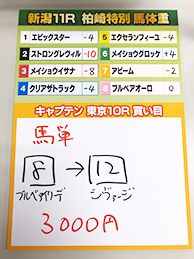 新潟11R 柏崎特別 馬体重
1 エピックスター -4
2 ストロングレヴィル -10
3 メイショウイサナ -8
4 クリアザトラック -4
5 エクセランフィーユ -2
6 メイショウグロッケ +4
7 アピーム -2
8 ブルベアオーロ 0
キャプテン 東京10R 買い目
馬単
8 → 12
ブルベアイリーデ シヴァージ
3000円